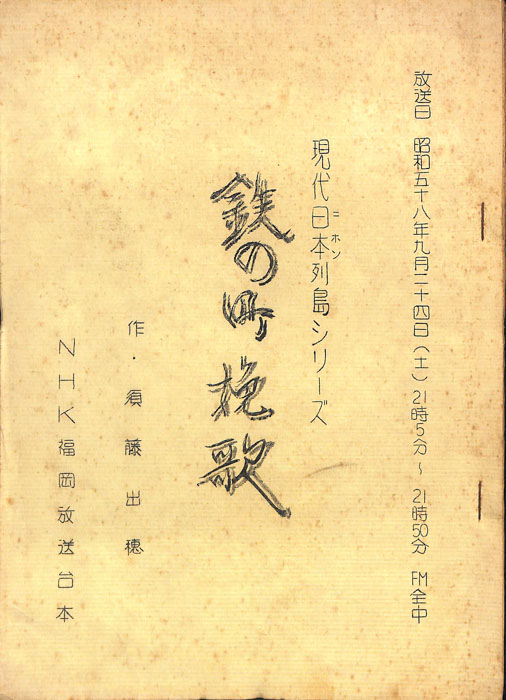 放送日 昭和五十八年九月二十四日(土)21時5分~21時50分 FM全中
現代日本列島シリーズ
ニホン
鉄の町挽歌
作・須藤出穂
NHK福岡放送台本